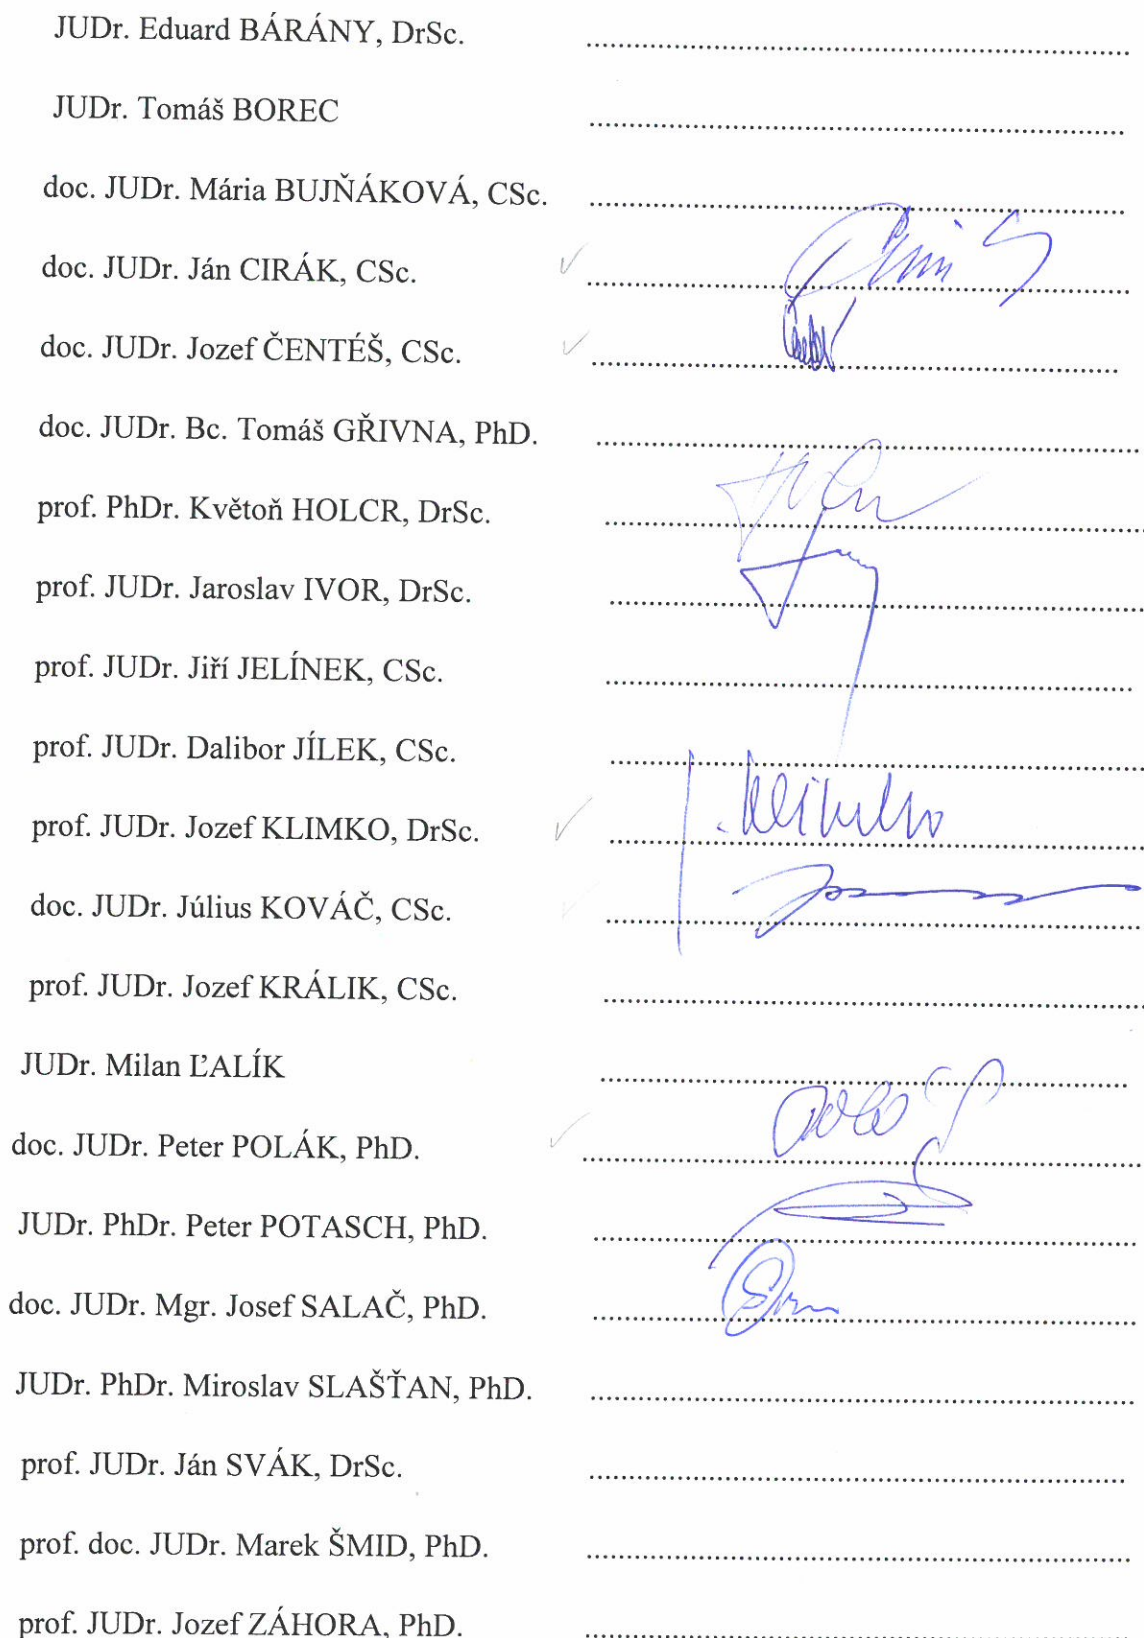 JUDr. Eduard BÁRÁNY, DrSc. ........................................
JUDr. Tomáš BOREC ........................................
doc. JUDr. Mária BUJŇÁKOVÁ, CSc. ........................................
doc. JUDr. Ján CIRÁK, CSc. ........................................
doc. JUDr. Jozef ČENTÉŠ, CSc. ........................................
doc. JUDr. Bc. Tomáš GŘIVNA, PhD. ........................................
prof. PhDr. Květoň HOLCR, DrSc. ........................................
prof. JUDr. Jaroslav IVOR, DrSc. ........................................
prof. JUDr. Jiří JELÍNEK, CSc. ........................................
prof. JUDr. Dalibor JÍLEK, CSc. ........................................
prof. JUDr. Jozef KLIMKO, DrSc. ........................................
doc. JUDr. Július KOVÁČ, CSc. ........................................
prof. JUDr. Jozef KRÁLIK, CSc. ........................................
JUDr. Milan ĽALÍK ........................................
doc. JUDr. Peter POLÁK, PhD. ........................................
JUDr. PhDr. Peter POTASCH, PhD. ........................................
doc. JUDr. Mgr. Josef SALAČ, PhD. ........................................
JUDr. PhDr. Miroslav SLAŠŤAN, PhD. ........................................
prof. JUDr. Ján SVÁK, DrSc. ........................................
prof. doc. JUDr. Marek ŠMID, PhD. ........................................
prof. JUDr. Jozef ZÁHORA, PhD. ........................................